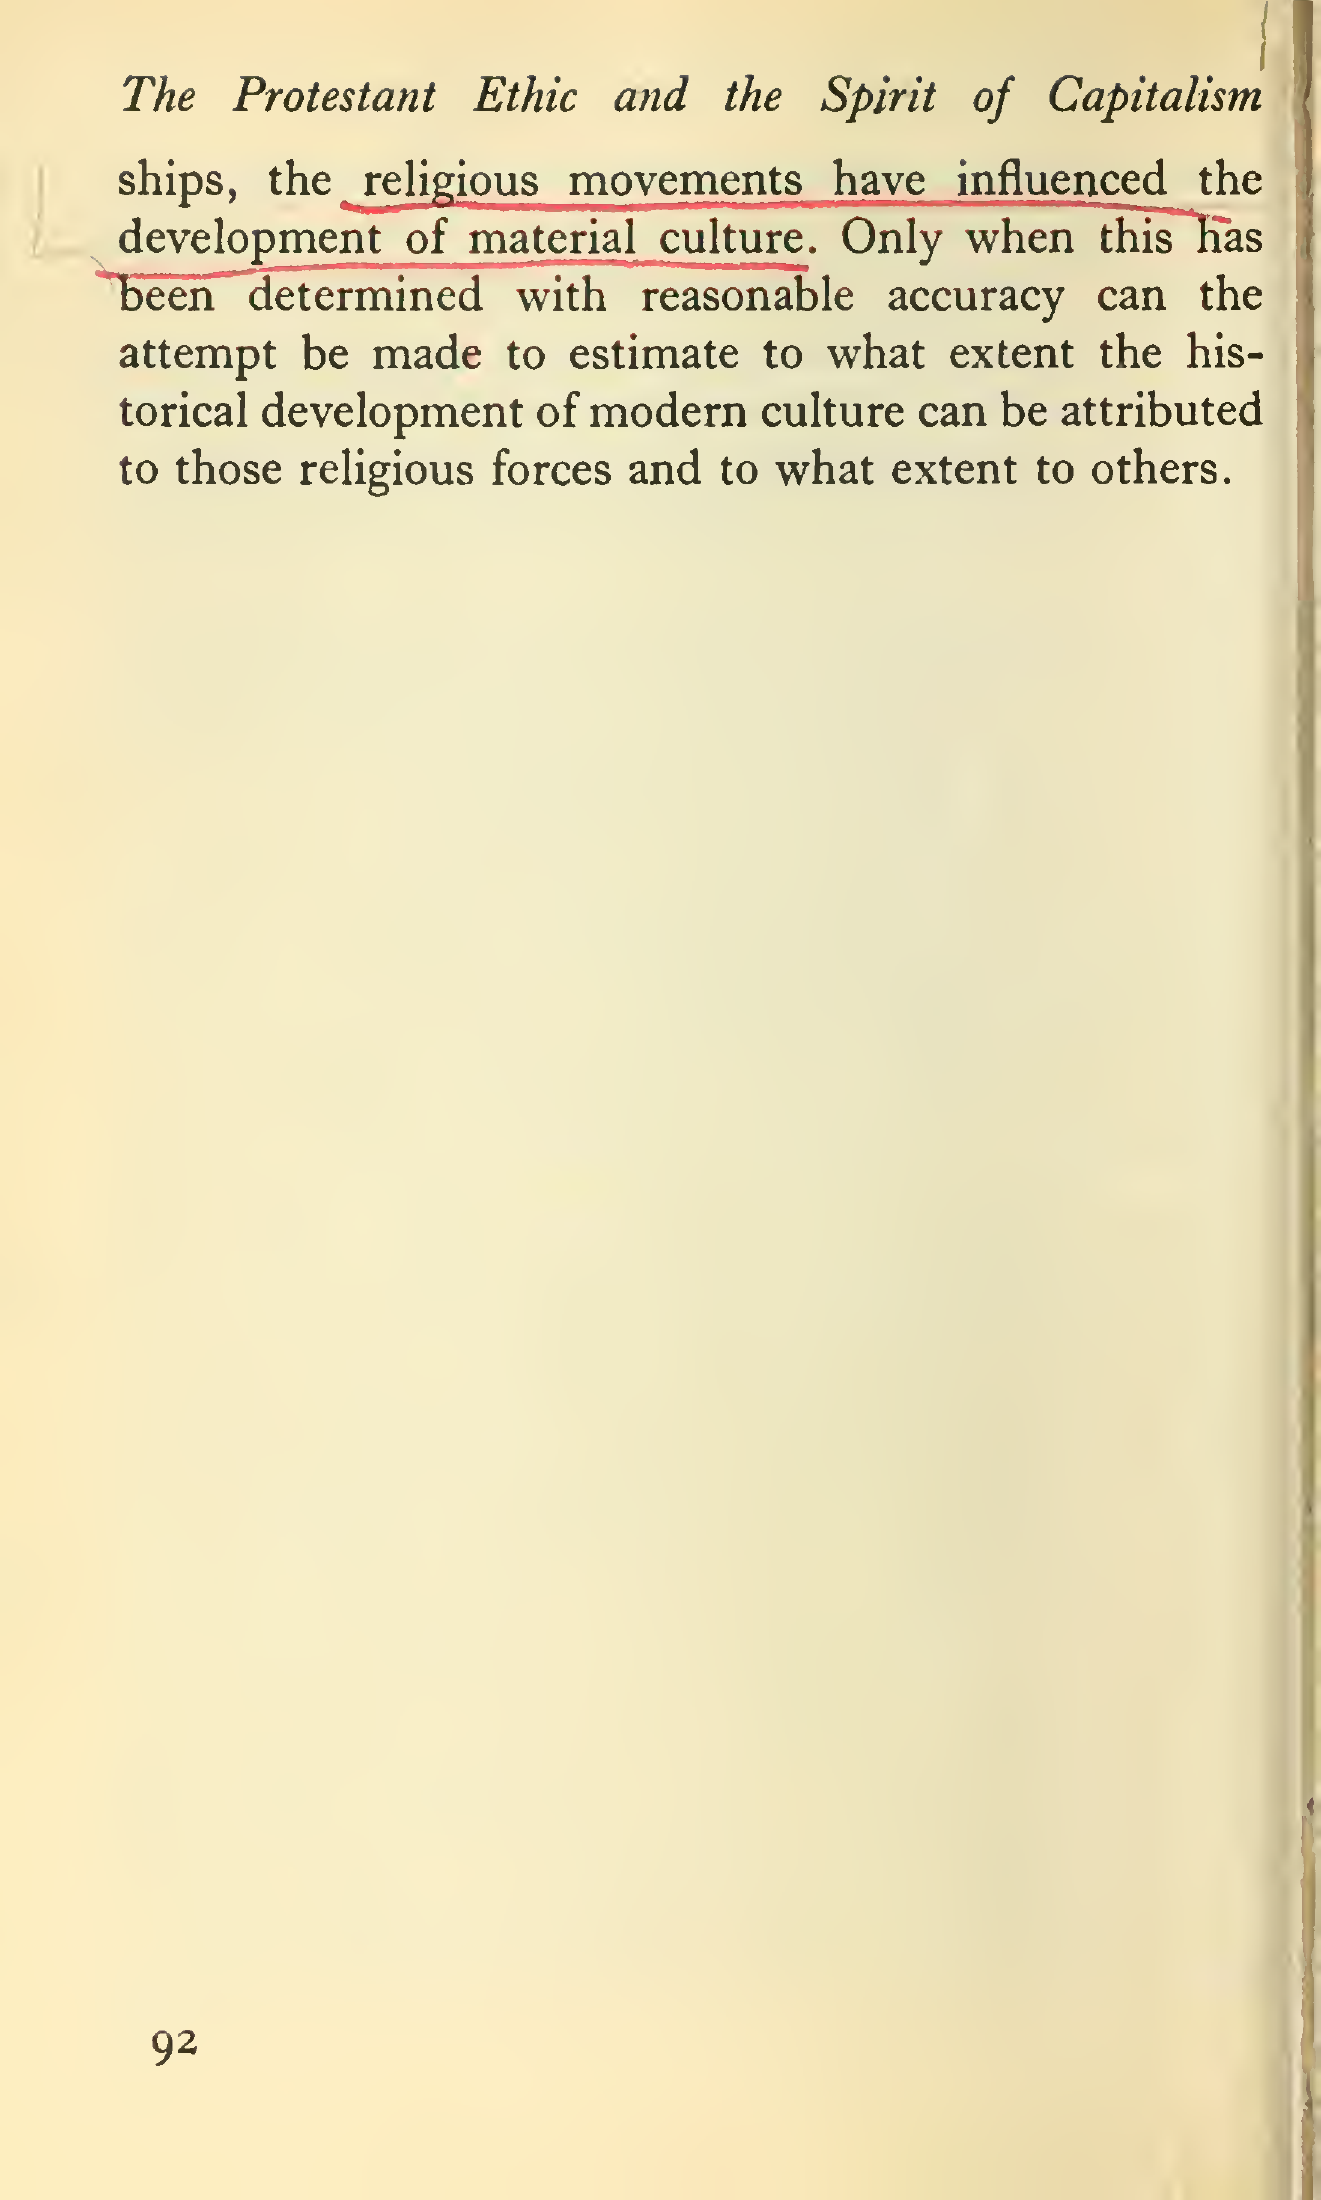 The Protestant Ethic and the Spirit of Capitalism
ships, the religious movements have influenced the
development of material culture. Only when this has
been determined with reasonable accuracy can the
attempt be made to estimate to what extent the his-
torical development of modern culture can be attributed
to those religious forces and to what extent to others.
92